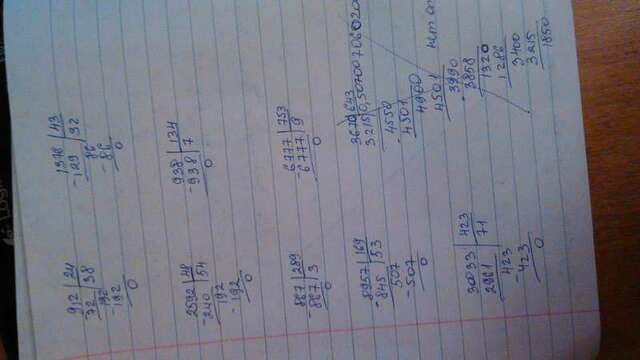 912 | 24
72 | 38
192
-192
0
1378 | 43
-129 | 32
86
-86
0
2592 | 48
-240 | 54
192
-192
0
938 | 134
-938 | 7
0
867 | 289
-867 | 3
0
6777 | 753
-6777 | 9
0
8957 | 169
-845 | 53
507
-507
0
3670 | 643
3215 | 0,50700706020
4550
-4501
4900
4501
3990
3858
1320
1286
3400
3215
1850
нет
30033 | 423
2961 | 71
423
-423
0